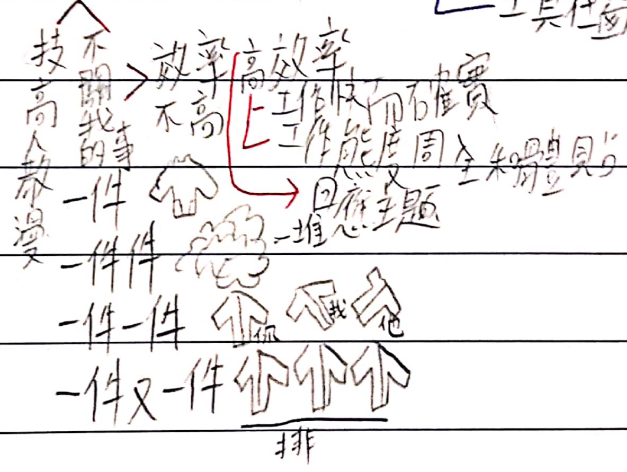 工具
技高人散漫
不關我的事
效率不高
高效率
工作快而確實
工作態度周全和體貼
回應主題
一件
一件件
一堆
一件一件
你
我
他
一件又一件
排